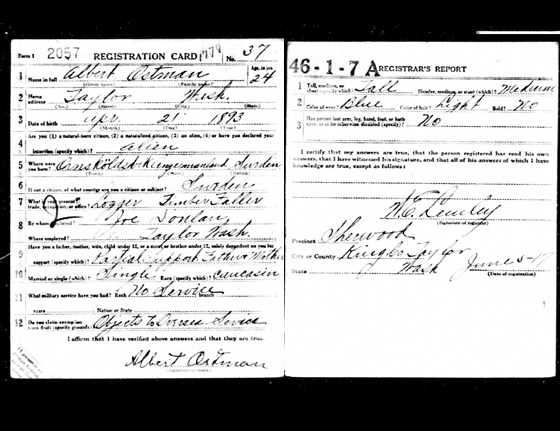 Form 1 2057 REGISTRATION CARD 1779 No. 37
1 Name in full Albert Ostman Age, in yrs. 24
(Given name) (Family name)
2 Home address Taylor Wash.
(No.) (Street) (City) (State)
3 Date of birth Apr. 21 1893
(Month) (Day) (Year)
4 Are you (1) a natural-born citizen, (2) a naturalized citizen, (3) an alien, (4) or have you declared your intention (specify which)? alien
5 Where were you born? Sweden
(Town) (State) (Nation)
6 If not a citizen, of what country are you a citizen or subject? Sweden
7 What is your present trade, occupation, or office? Logger Timber Faller
2
8 By whom employed? Joe
Where employed? Taylor Wash.
9 Have you a father, mother, wife, child under 12, or a sister or brother under 12, solely dependent on you for support (specify which)? Partial support Father & Mother
10 Married or single (which)? Single Race (specify which)? Caucasin
11 What military service have you had? Rank No Service branch
years Nation or State
12 Do you claim exemption from draft (specify grounds)? Objects to Oversea Service
I affirm that I have verified above answers and that they are true.
Albert Ostman
46-1-7 A REGISTRAR'S REPORT
1 Tall, medium, or short (specify which)? Tall Slender, medium, or stout (which)? Medium
2 Color of eyes? Blue Color of hair? Light Bald? No
3 Has person lost arm, leg, hand, foot, or both eyes, or is he otherwise disabled (specify)? No
I certify that my answers are true, that the person registered has read his own answers, that I have witnessed his signature, and that all of his answers of which I have knowledge are true, except as follows:
(Signature of registrar)
Precinct Sherwood
City or County Taylor
State Wash June 5-17
(Date of registration)